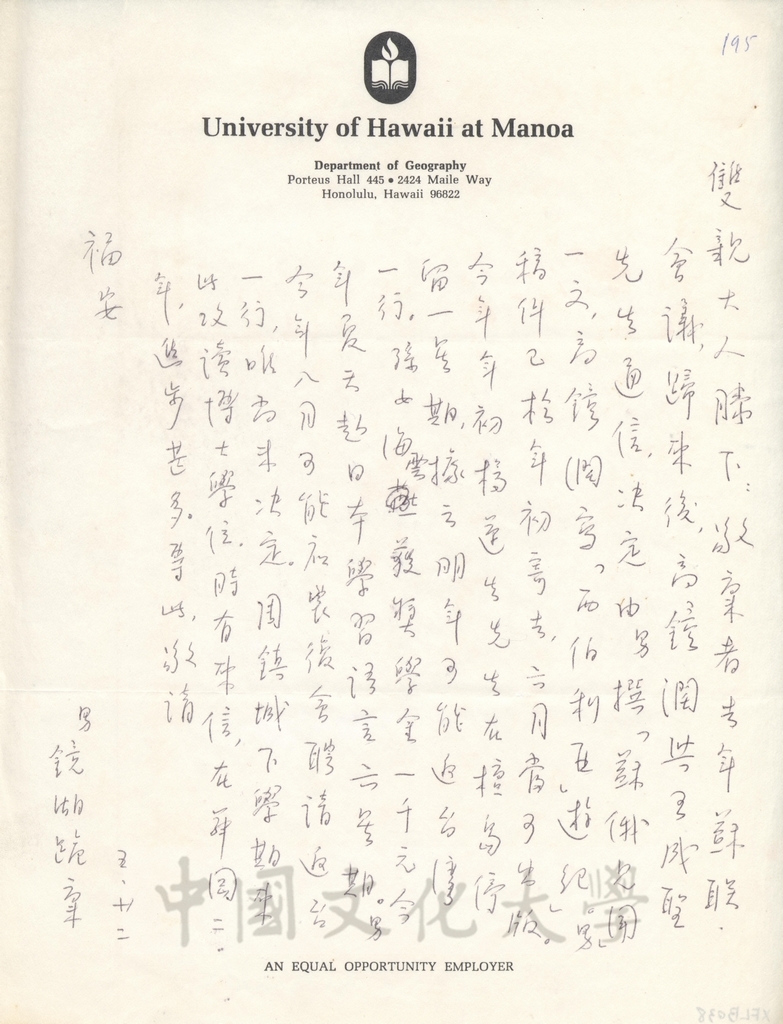 195
University of Hawaii at Manoa
Department of Geography
Porteus Hall 445 • 2424 Maile Way
Honolulu, Hawaii 96822
雙親大人膝下：敬稟者去年蘇联
會議，歸來後，高鏡潤與王成聖
先生通信，决定由男撰「蘇俄見聞」
一文，高鏡潤寫「西伯利亞」遊紀。男
稿件已於年初寄去，六月當可出版。
今年年初楊運生先生在檀島停
留一星期，據云明年可能返台灣
一行。孫女海雲獲獎學金一千元今
年夏天赴日本學習語言六星期。男
今年八月可能應農復會聘請返台
一行，唯尚未决定。周鎮城下學期來
此攻讀博士學位。時有來信，在祥園二
年，進步甚多。專此，敬請
福安
男
鏡湖跪稟
五、廿二
中國文化大學
AN EQUAL OPPORTUNITY EMPLOYER
XFLB038